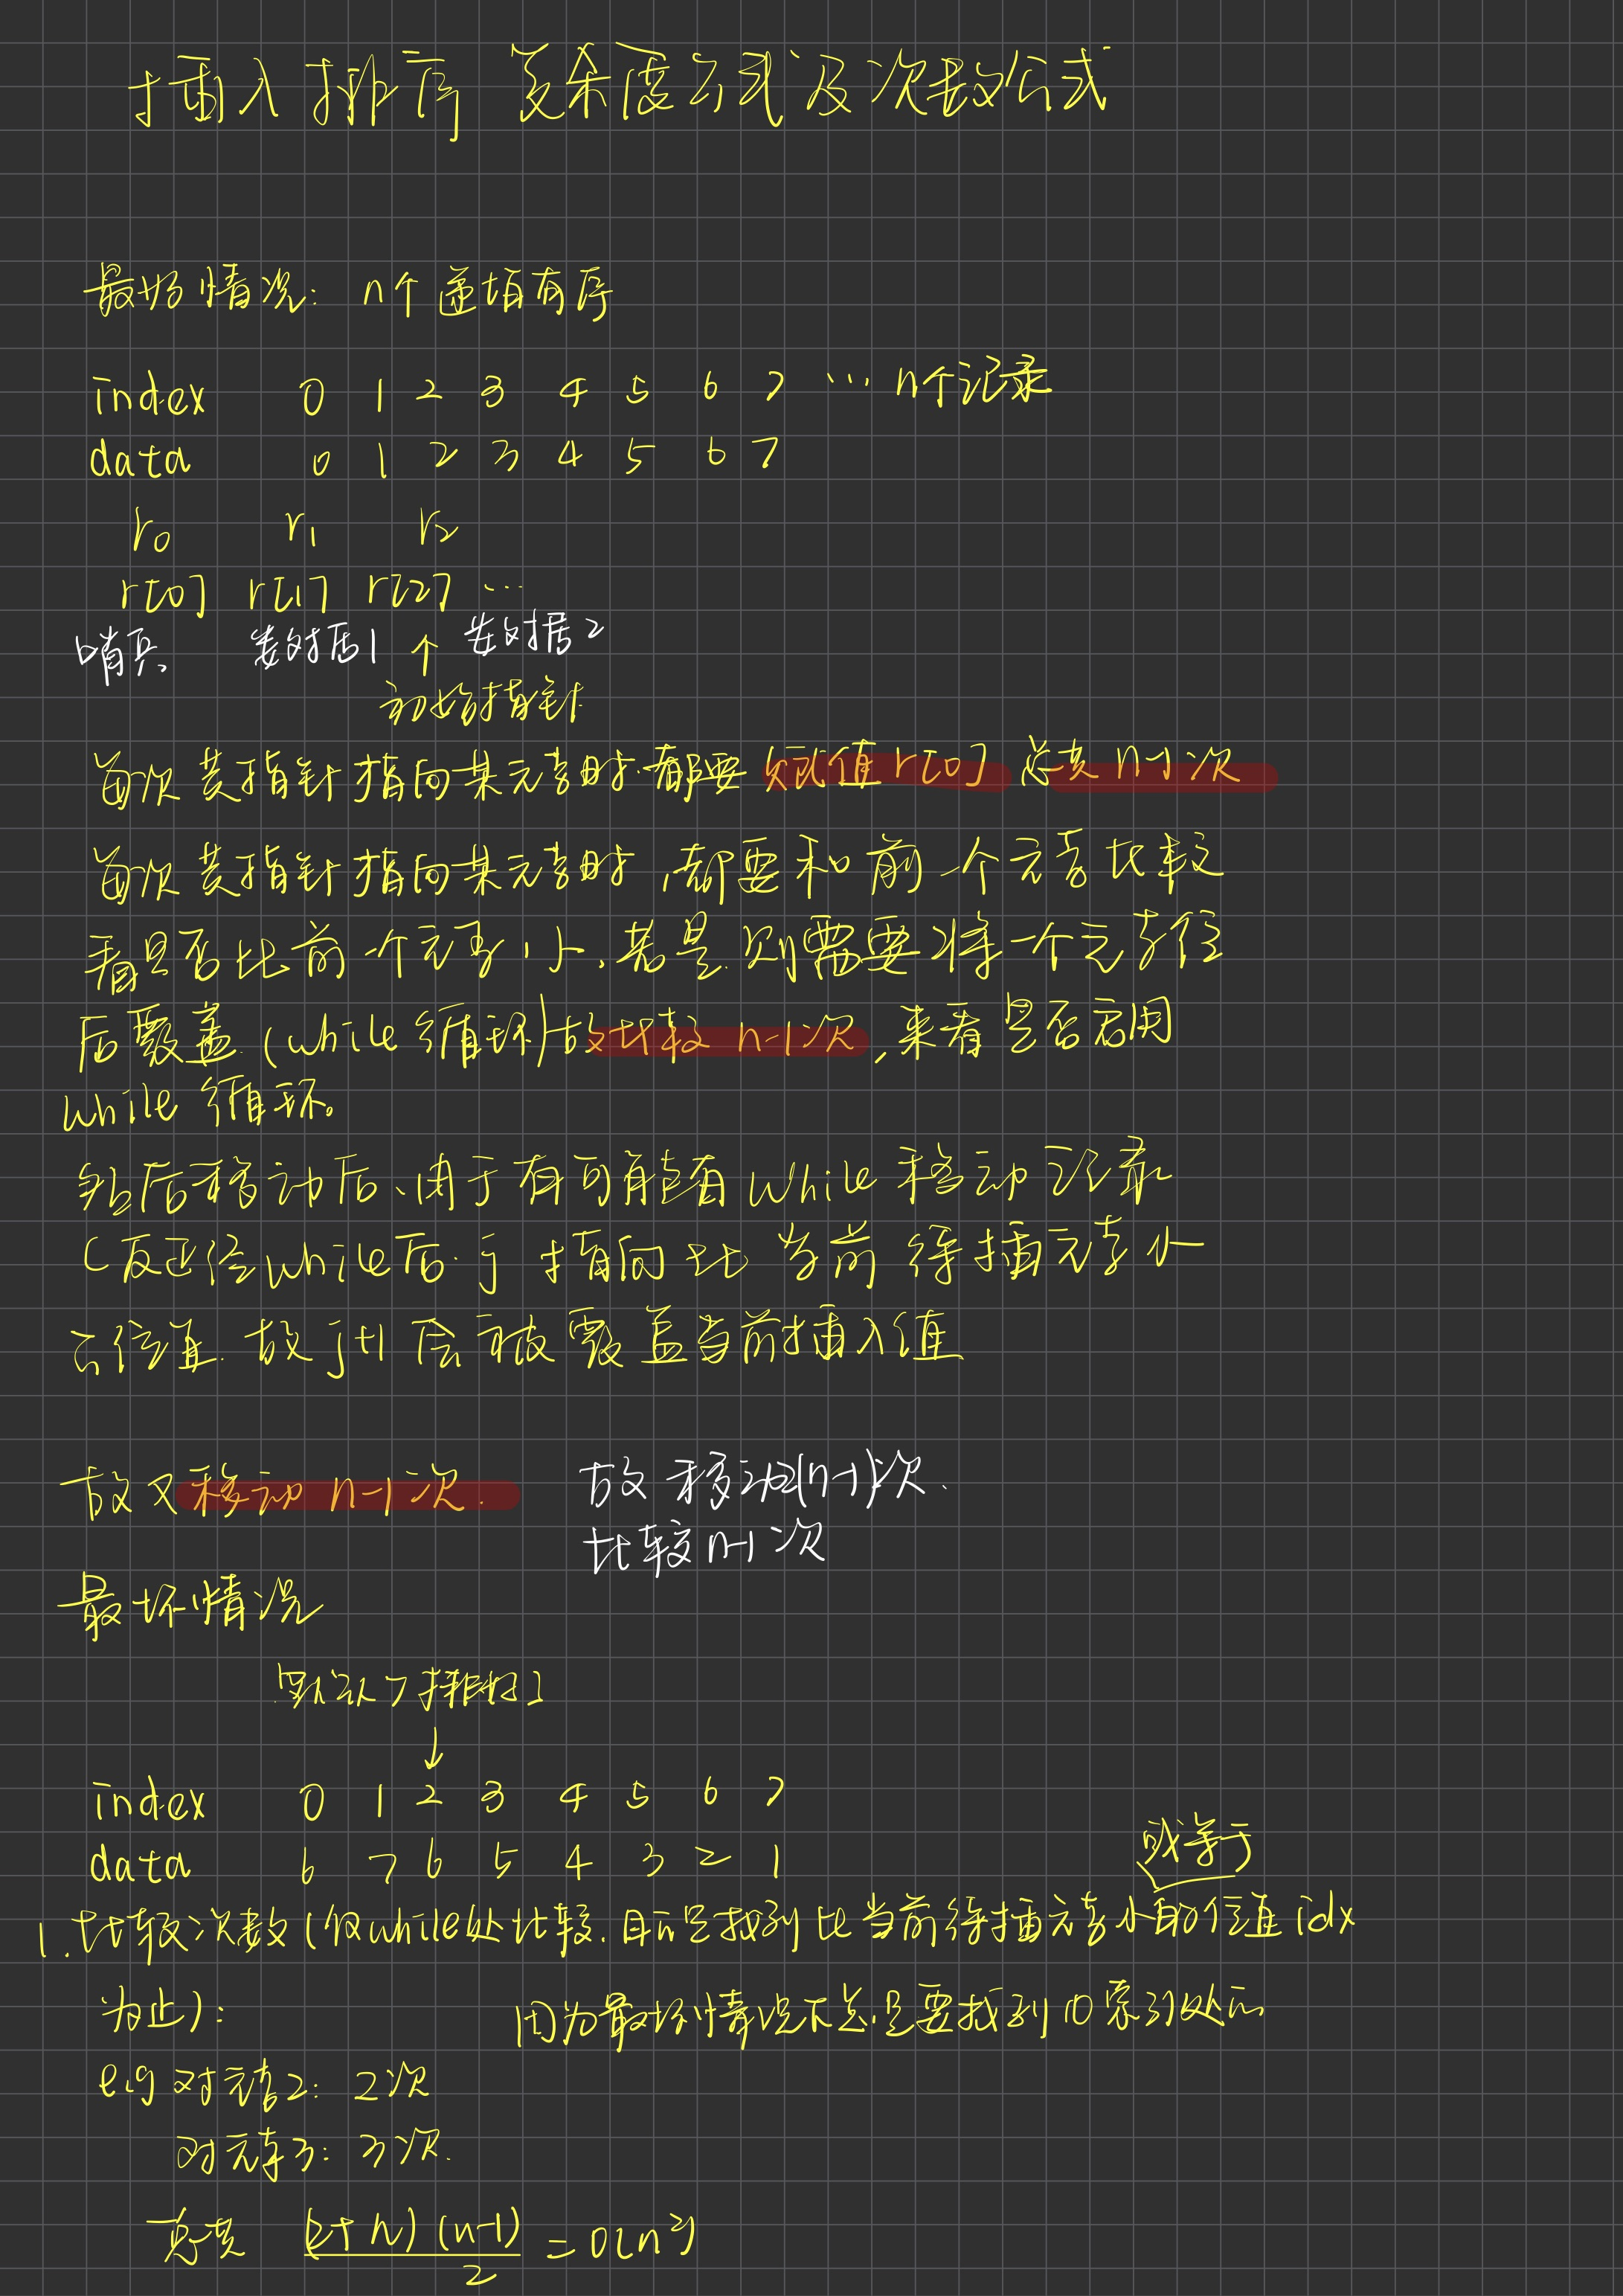 插入排序 复杂度公式及次数公式
最好情况：n个递增有序
index 0 1 2 3 4 5 6 7 … n个记录
data 0 1 2 3 4 5 6 7
r0 r1 r2
r[0] r[1] r[2] …
哨兵 数据1 ↑ 数据2
初始指针
每次其指针指向某元素时.都要 赋值r[0] 总共 n-1次
每次其指针指向某元素时,都要和前一个元素比较
看是否比前一个元素小,若是.则需要将一个元素往
后覆盖.(while循环)故比较 n-1次,来看是否启用
while循环。
然后移动后、由于有可能有while移动记录
(反正经while后.j 指向比当前待插元素小
的位置.故j+1会被覆盖当前插入值
故又移动 n-1次. 故移动2(n-1)次.
比较n-1次
最坏情况
默认7排好了
↓
index 0 1 2 3 4 5 6 7
data 6 7 6 5 4 3 2 1
或等于
1.比较次数(仅while处比较.目的是找到比当前待插元素小的位置idx
为止): 因为最坏情况下总是要找到0索引处的
e.g 对元素2: 2次
对元素3: 3次.
总共 (2+n)(n-1)/2 = O(n²)